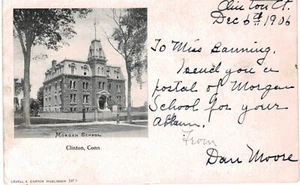 Clinton Ct.
Dec 6th 1906
To Miss Banning.
I send you a
postal of Morgan
School for your
Album.
From
Dan Moore
Morgan School.
Clinton, Conn.